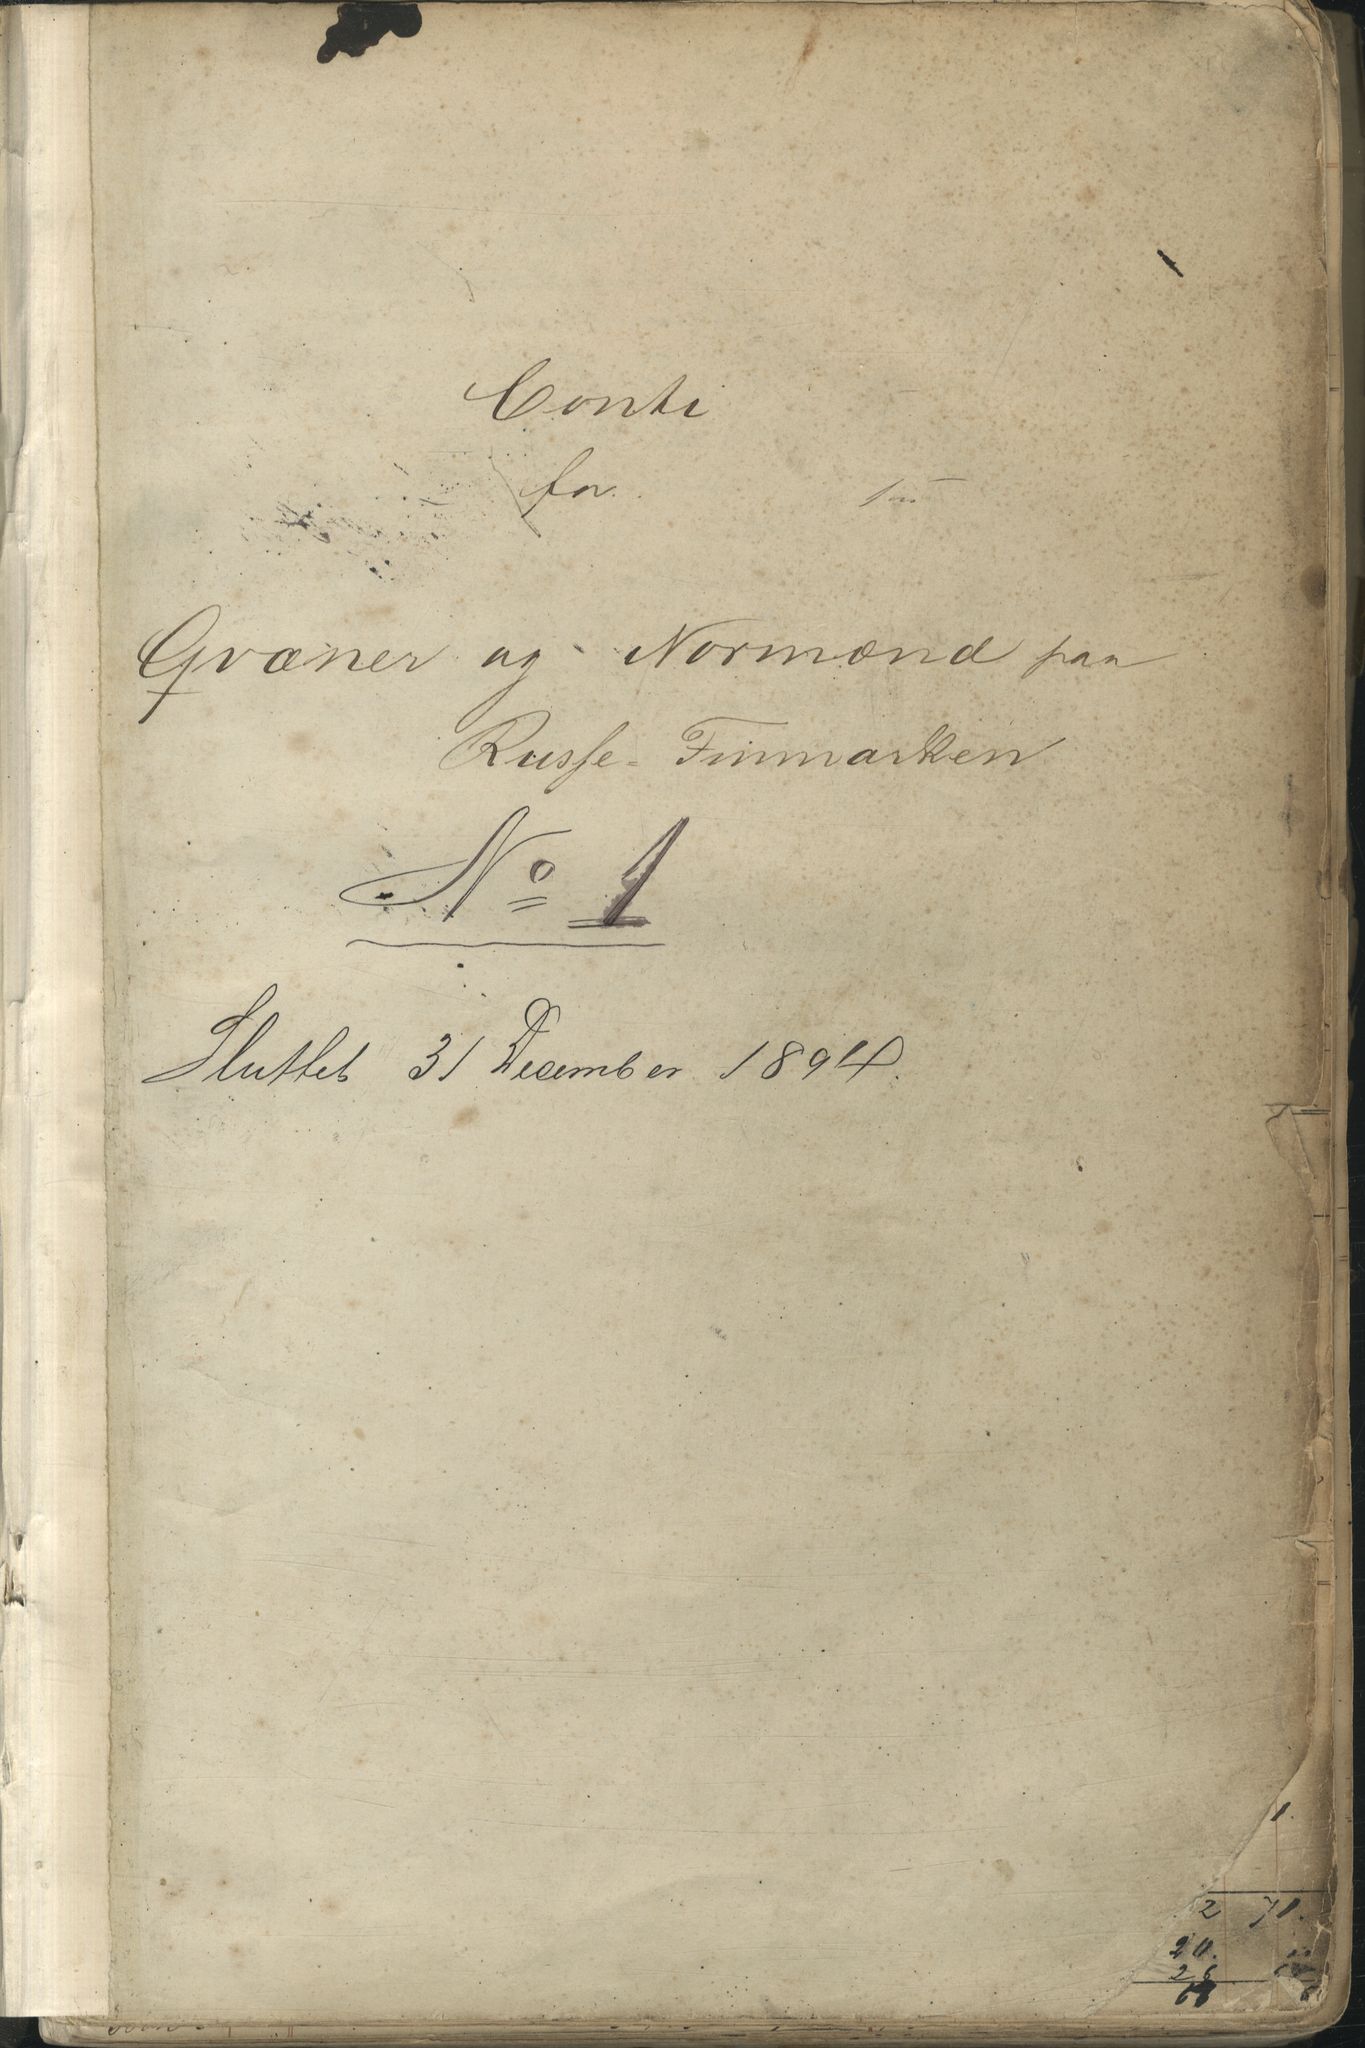 Conti
for
Qvæner og Normænd paa
Russe-Finmarken
No 1
Sluttet 31 December 1894.
1.
2 71.
20.
26
68